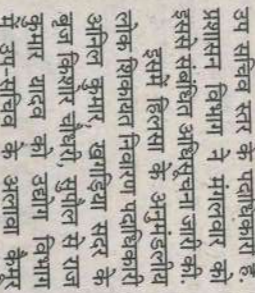 उप सचिव स्तर के पदाधिकारी हैं.
प्रशासन विभाग ने मंगलवार को
इससे संबंधित अधिसूचना जारी की.
इसमें हिलसा के अनुमंडलीय
लोक शिकायत निवारण पदाधिकारी
अनिल कुमार, खगड़िया सदर के
बृज किशोर चौधरी, सुपौल से राज
कुमार यादव को उद्योग विभाग
में उप-सचिव के अलावा कैमूर